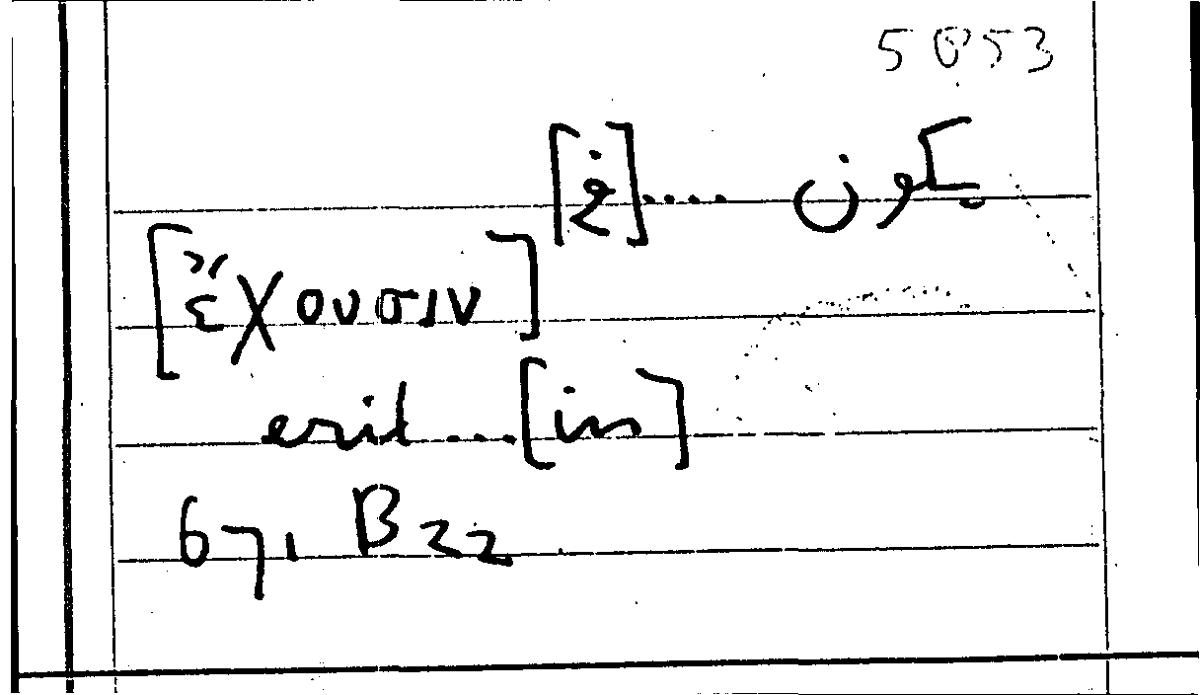 5053
يكون .... [في]
[ἔχουσιν]
erit .... [in]
671 B 22